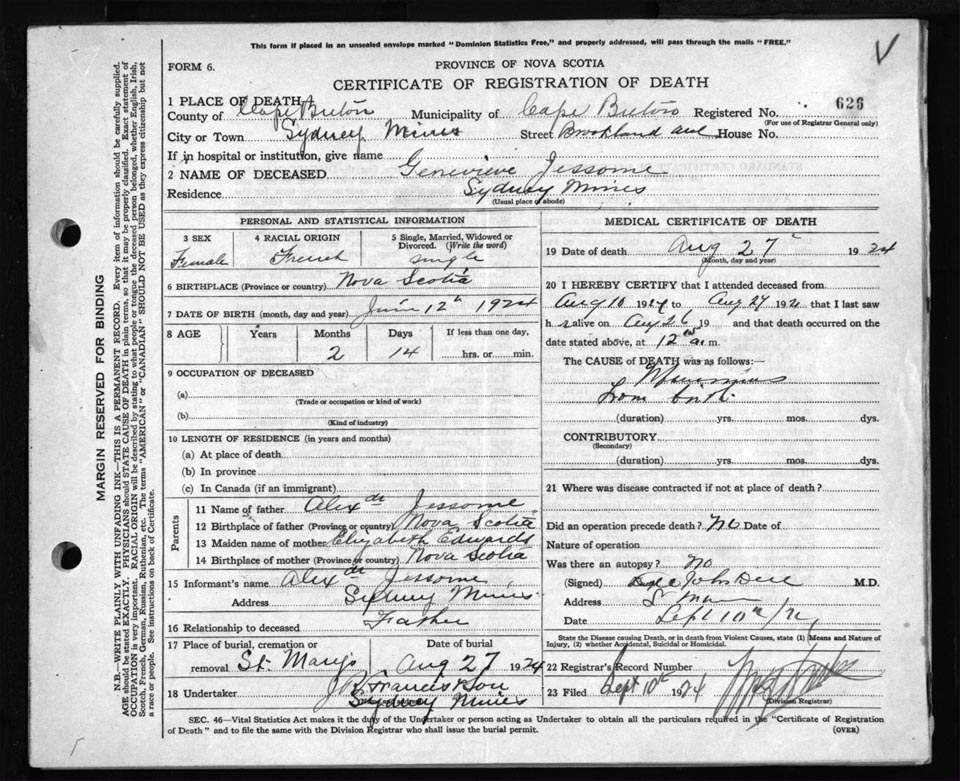 This form if placed in an unsealed envelope marked "Dominion Statistics Free," and properly addressed, will pass through the mails "FREE."
FORM 6.
PROVINCE OF NOVA SCOTIA
CERTIFICATE OF REGISTRATION OF DEATH
1 PLACE OF DEATH
County of Cape Breton Municipality of Cape Breton Registered No. 626
(For use of Registrar General only)
City or Town Sydney Mines Street Brookland Ave House No.
If in hospital or institution, give name
2 NAME OF DECEASED Genevieve Jessome
Residence Sydney Mines
(Usual place of abode)
PERSONAL AND STATISTICAL INFORMATION
3 SEX 4 RACIAL ORIGIN 5 Single, Married, Widowed or Divorced. (Write the word)
Female French single
6 BIRTHPLACE (Province or country) Nova Scotia
7 DATE OF BIRTH (month, day and year) June 12th 1924
8 AGE Years Months Days If less than one day,
2 14 hrs. or min.
9 OCCUPATION OF DECEASED
(a)
(Trade or occupation or kind of work)
(b)
(Kind of industry)
10 LENGTH OF RESIDENCE (in years and months)
(a) At place of death
(b) In province
(c) In Canada (if an immigrant)
Parents
11 Name of father Alexdr Jessome
12 Birthplace of father (Province or country) Nova Scotia
13 Maiden name of mother Elizabeth Edwards
14 Birthplace of mother (Province or country) Nova Scotia
15 Informant's name Alexdr Jessome
Address Sydney Mines
16 Relationship to deceased Father
17 Place of burial, cremation or removal St. Marys
Date of burial Aug 27 1924
18 Undertaker Francis & Son
Sydney Mines
MEDICAL CERTIFICATE OF DEATH
19 Date of death Aug 27 1924
(Month, day and year)
20 I HEREBY CERTIFY that I attended deceased from
Aug 10 1924 to Aug 27 192 that I last saw
h alive on Aug 26 19 and that death occurred on the
date stated above, at 12 a.m.
The CAUSE of DEATH was as follows:
from birth
(duration) yrs. mos. dys.
CONTRIBUTORY
(Secondary)
(duration) yrs. mos. dys.
21 Where was disease contracted if not at place of death?
Did an operation precede death? No Date of
Nature of operation
Was there an autopsy? No
(Signed) John M.D.
Address
Date Sept 10th
State the Disease causing Death, or in death from Violent Causes, state (1) Means and Nature of Injury, (2) whether Accidental, Suicidal or Homicidal.
22 Registrar's Record Number
23 Filed Sept 10th 1924
(Division Registrar)
SEC. 46—Vital Statistics Act makes it the duty of the Undertaker or person acting as Undertaker to obtain all the particulars required in the "Certificate of Registration
of Death" and to file the same with the Division Registrar who shall issue the burial permit.
(OVER)
MARGIN RESERVED FOR BINDING
N.B.—WRITE PLAINLY WITH UNFADING INK—THIS IS A PERMANENT RECORD. Every item of information should be carefully supplied.
AGE should be stated EXACTLY. PHYSICIANS should STATE CAUSE OF DEATH in plain terms, so that it may be properly classified. Exact statement of
OCCUPATION is very important. RACIAL ORIGIN will be described by stating to what people or tongue the deceased person belonged, whether English, Irish,
Scotch, French, German, Russian, Ruthenian, etc. The terms "AMERICAN" or "CANADIAN" SHOULD NOT BE USED as they express citizenship but not
a race or people. See instructions on back of Certificate.